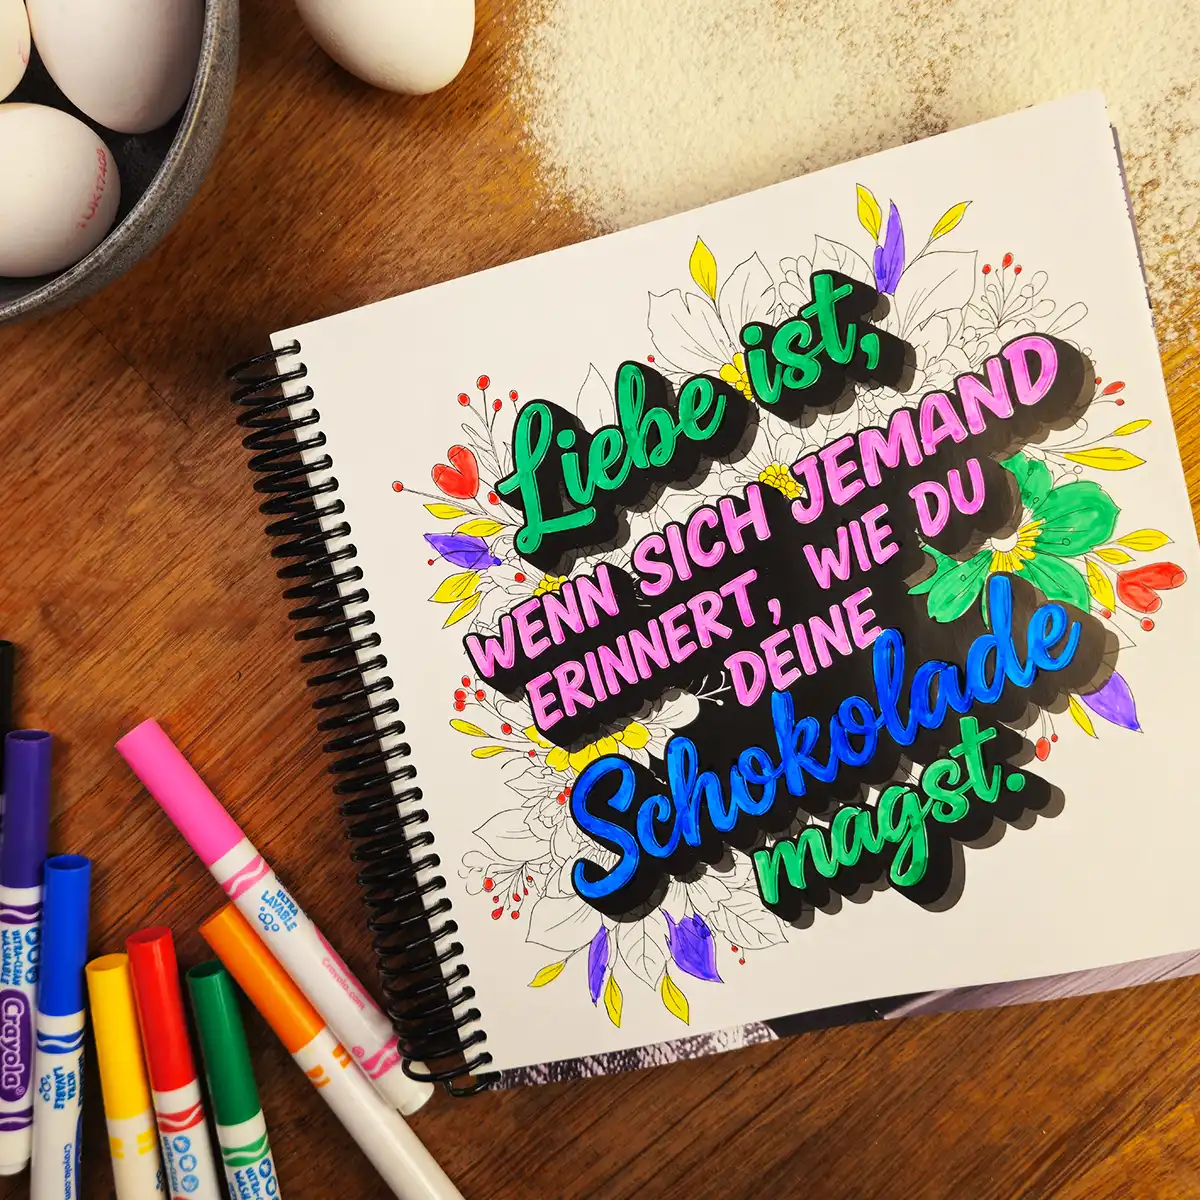 Liebe ist,
WENN SICH JEMAND
ERINNERT, WIE DU
DEINE
Schokolade
magst.
ULTRA
LAVABLE
Crayola.com
ULTRA-CLEAN
WASHABLE
Crayola
ULTRA
LAVABLE
Crayola.com